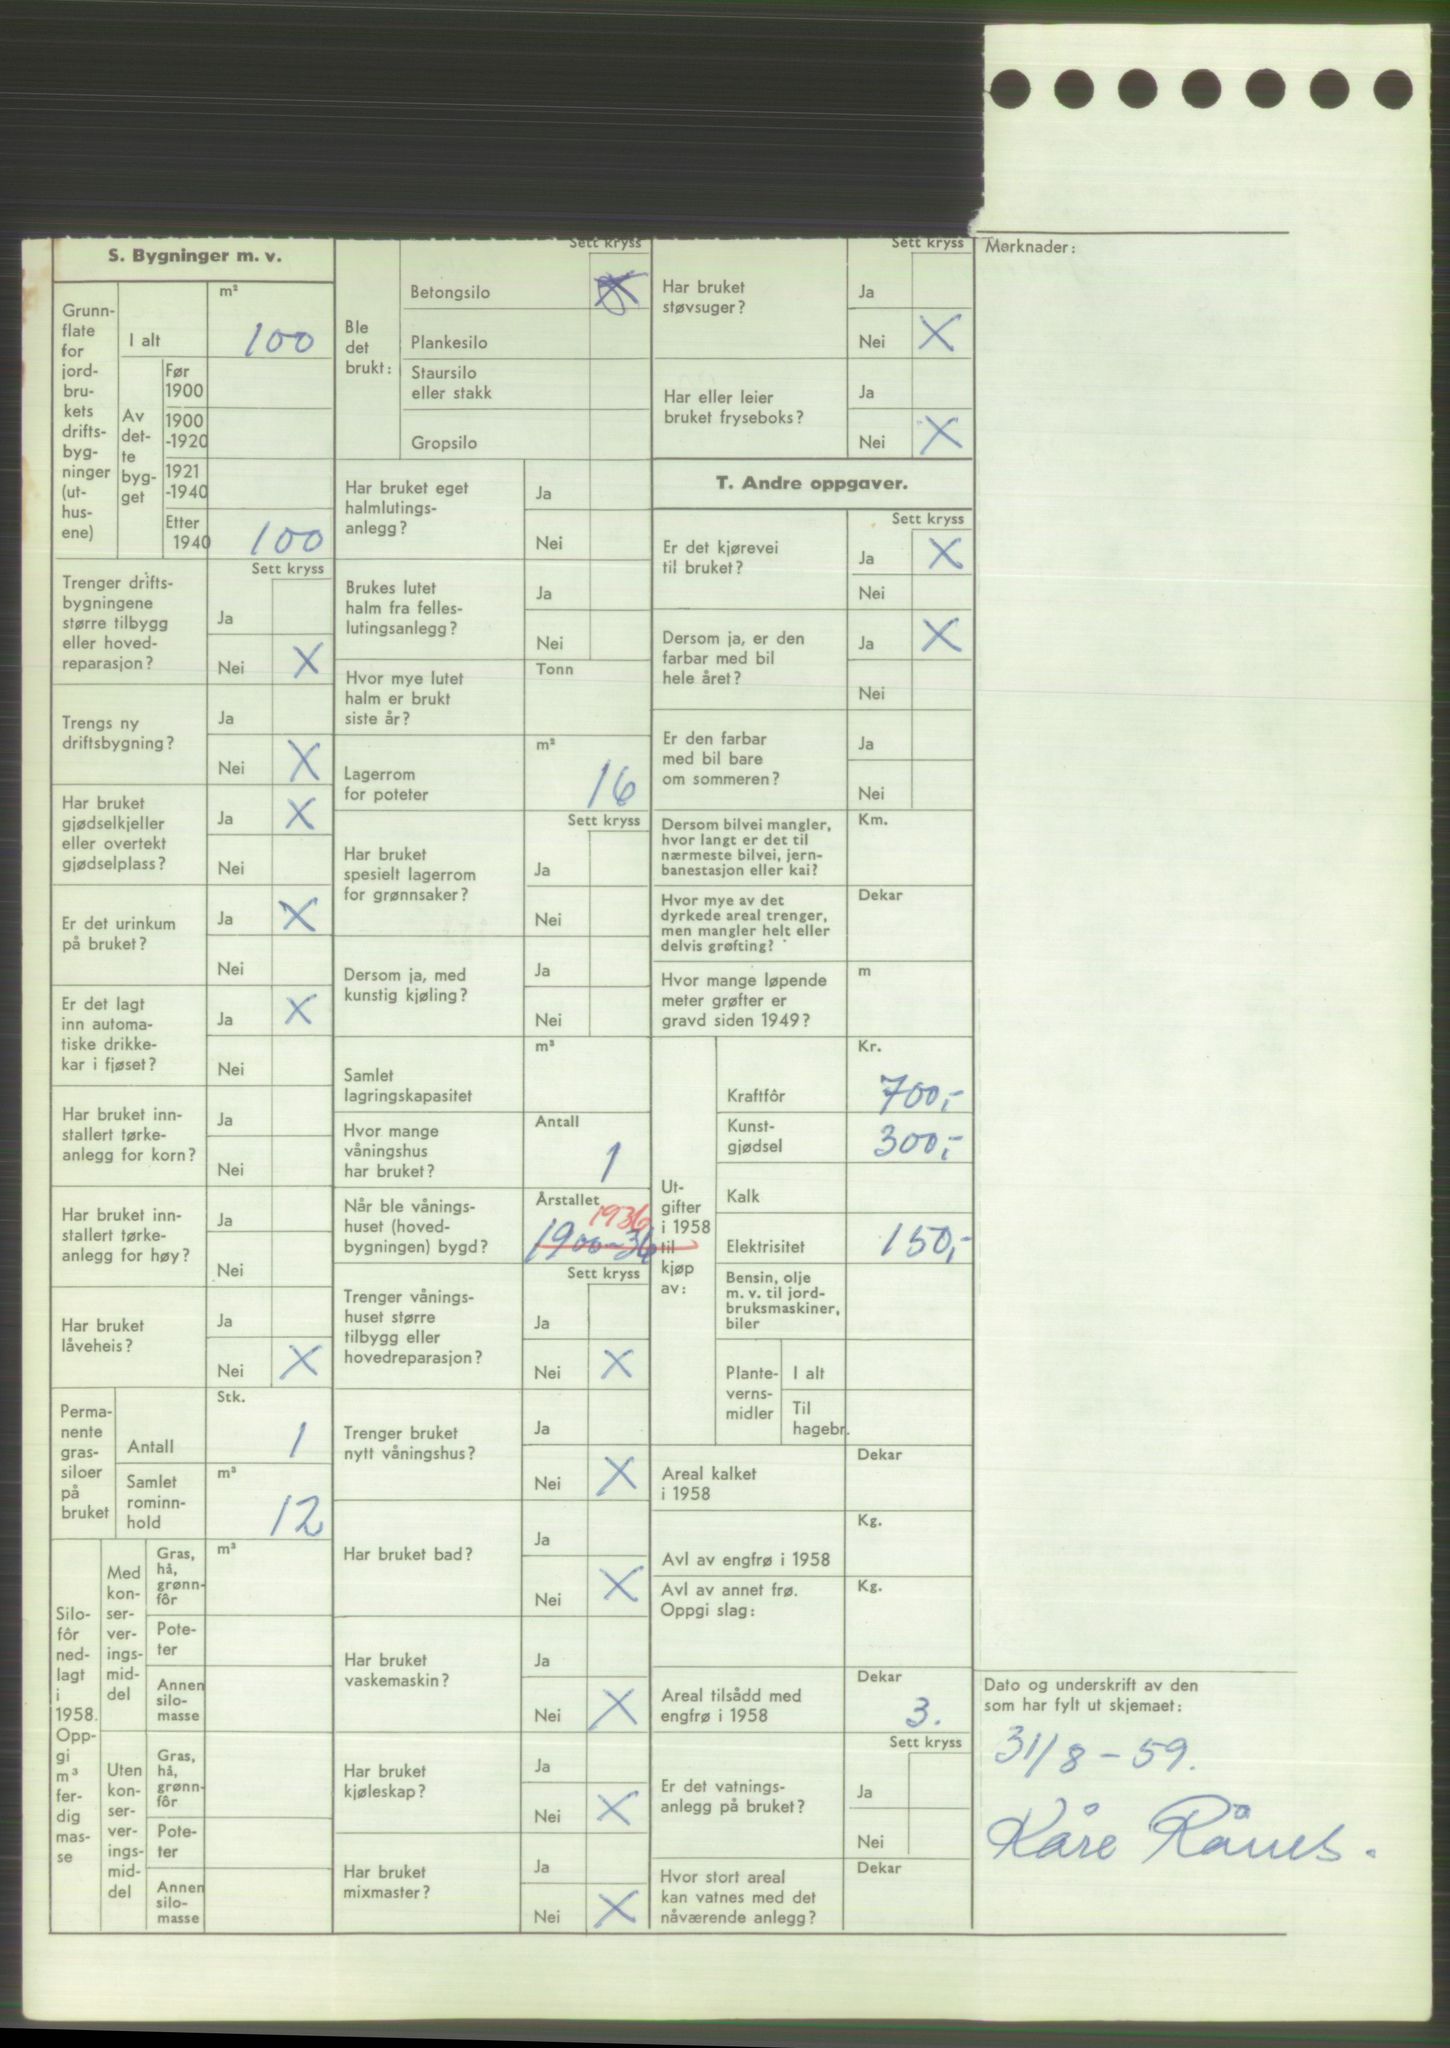 S. Bygninger m. v.
Grunn-
flate
for
jord-
bru-
kets
drifts-
byg-
ninger
(ut-
hus-
ene)
I alt
m²
100
Av
det-
te
byg-
get
Før
1900
1900
-1920
1921
-1940
Etter
1940
100
Sett kryss
Trenger drifts-
bygningene
større tilbygg
eller hoved-
reparasjon?
Ja
Nei X
Trengs ny
driftsbygning?
Ja
Nei X
Har bruket
gjødselkjeller
eller overtekt
gjødselplass?
Ja X
Nei
Er det urinkum
på bruket?
Ja X
Nei
Er det lagt
inn automa-
tiske drikke-
kar i fjøset?
Ja X
Nei
Har bruket inn-
stallert tørke-
anlegg for korn?
Ja
Nei
Har bruket inn-
stallert tørke-
anlegg for høy?
Ja
Nei
Har bruket
låveheis?
Ja
Nei X
Perma-
nente
gras-
siloer
på
bruket
Antall
Stk.
1
Samlet
rominn-
hold
m³
12
Silo-
fôr
ned-
lagt
i
1958.
Opp-
gi
m³
fer-
dig
mas-
se
Med
kon-
ser-
ver-
ings-
mid-
del
Gras,
hå,
grønn-
fôr
m³
Pote-
ter
Annen
silo-
masse
Uten
kon-
ser-
ver-
ings-
mid-
del
Gras,
hå,
grønn-
fôr
Pote-
ter
Annen
silo-
masse
Sett kryss
Ble
det
brukt:
Betongsilo
Plankesilo
Staursilo
eller stakk
Gropsilo
Har bruket eget
halmlutings-
anlegg?
Ja
Nei
Brukes lutet
halm fra felles-
lutingsanlegg?
Ja
Nei
Hvor mye lutet
halm er brukt
siste år?
Tonn
Lagerrom
for poteter
m²
16
Sett kryss
Har bruket
spesielt lagerrom
for grønnsaker?
Ja
Nei
Dersom ja, med
kunstig kjøling?
Ja
Nei
Samlet
lagringskapasitet
m³
Hvor mange
våningshus
har bruket?
Antall
1
Når ble vånings-
huset (hoved-
bygningen) bygd?
Årstallet
1936
1900-36
Sett kryss
Trenger vånings-
huset større
tilbygg eller
hovedreparasjon?
Ja
Nei X
Trenger bruket
nytt våningshus?
Ja
Nei X
Har bruket bad?
Ja
Nei X
Har bruket
vaskemaskin?
Ja
Nei X
Har bruket
kjøleskap?
Ja
Nei X
Har bruket
mixmaster?
Ja
Nei X
Sett kryss
Har bruket
støvsuger?
Ja
Nei X
Har eller leier
bruket fryseboks?
Ja
Nei X
T. Andre oppgaver.
Sett kryss
Er det kjørevei
til bruket?
Ja X
Nei
Dersom ja, er den
farbar med bil
hele året?
Ja X
Nei
Er den farbar
med bil bare
om sommeren?
Ja
Nei
Dersom bilvei mangler,
hvor langt er det til
nærmeste bilvei, jern-
banestasjon eller kai?
Km.
Hvor mye av det
dyrkede areal trenger,
men mangler helt eller
delvis grøfting?
Dekar
Hvor mange løpende
meter grøfter er
gravd siden 1949?
m
Ut-
gifter
i 1958
til
kjøp
av:
Kr.
Kraftfôr 700,-
Kunst-
gjødsel 300,-
Kalk
Elektrisitet 150,-
Bensin, olje
m. v. til jord-
bruksmaskiner,
biler
Plante-
verns-
midler
I alt
Til
hagebr.
Areal kalket
i 1958
Dekar
Avl av engfrø i 1958
Kg.
Avl av annet frø.
Oppgi slag:
Kg.
Areal tilsådd med
engfrø i 1958
Dekar
3.
Sett kryss
Er det vatnings-
anlegg på bruket?
Ja
Nei
Hvor stort areal
kan vatnes med det
nåværende anlegg?
Dekar
Merknader:
Dato og underskrift av den
som har fylt ut skjemaet:
31/8-59.
Kåre Rånes.